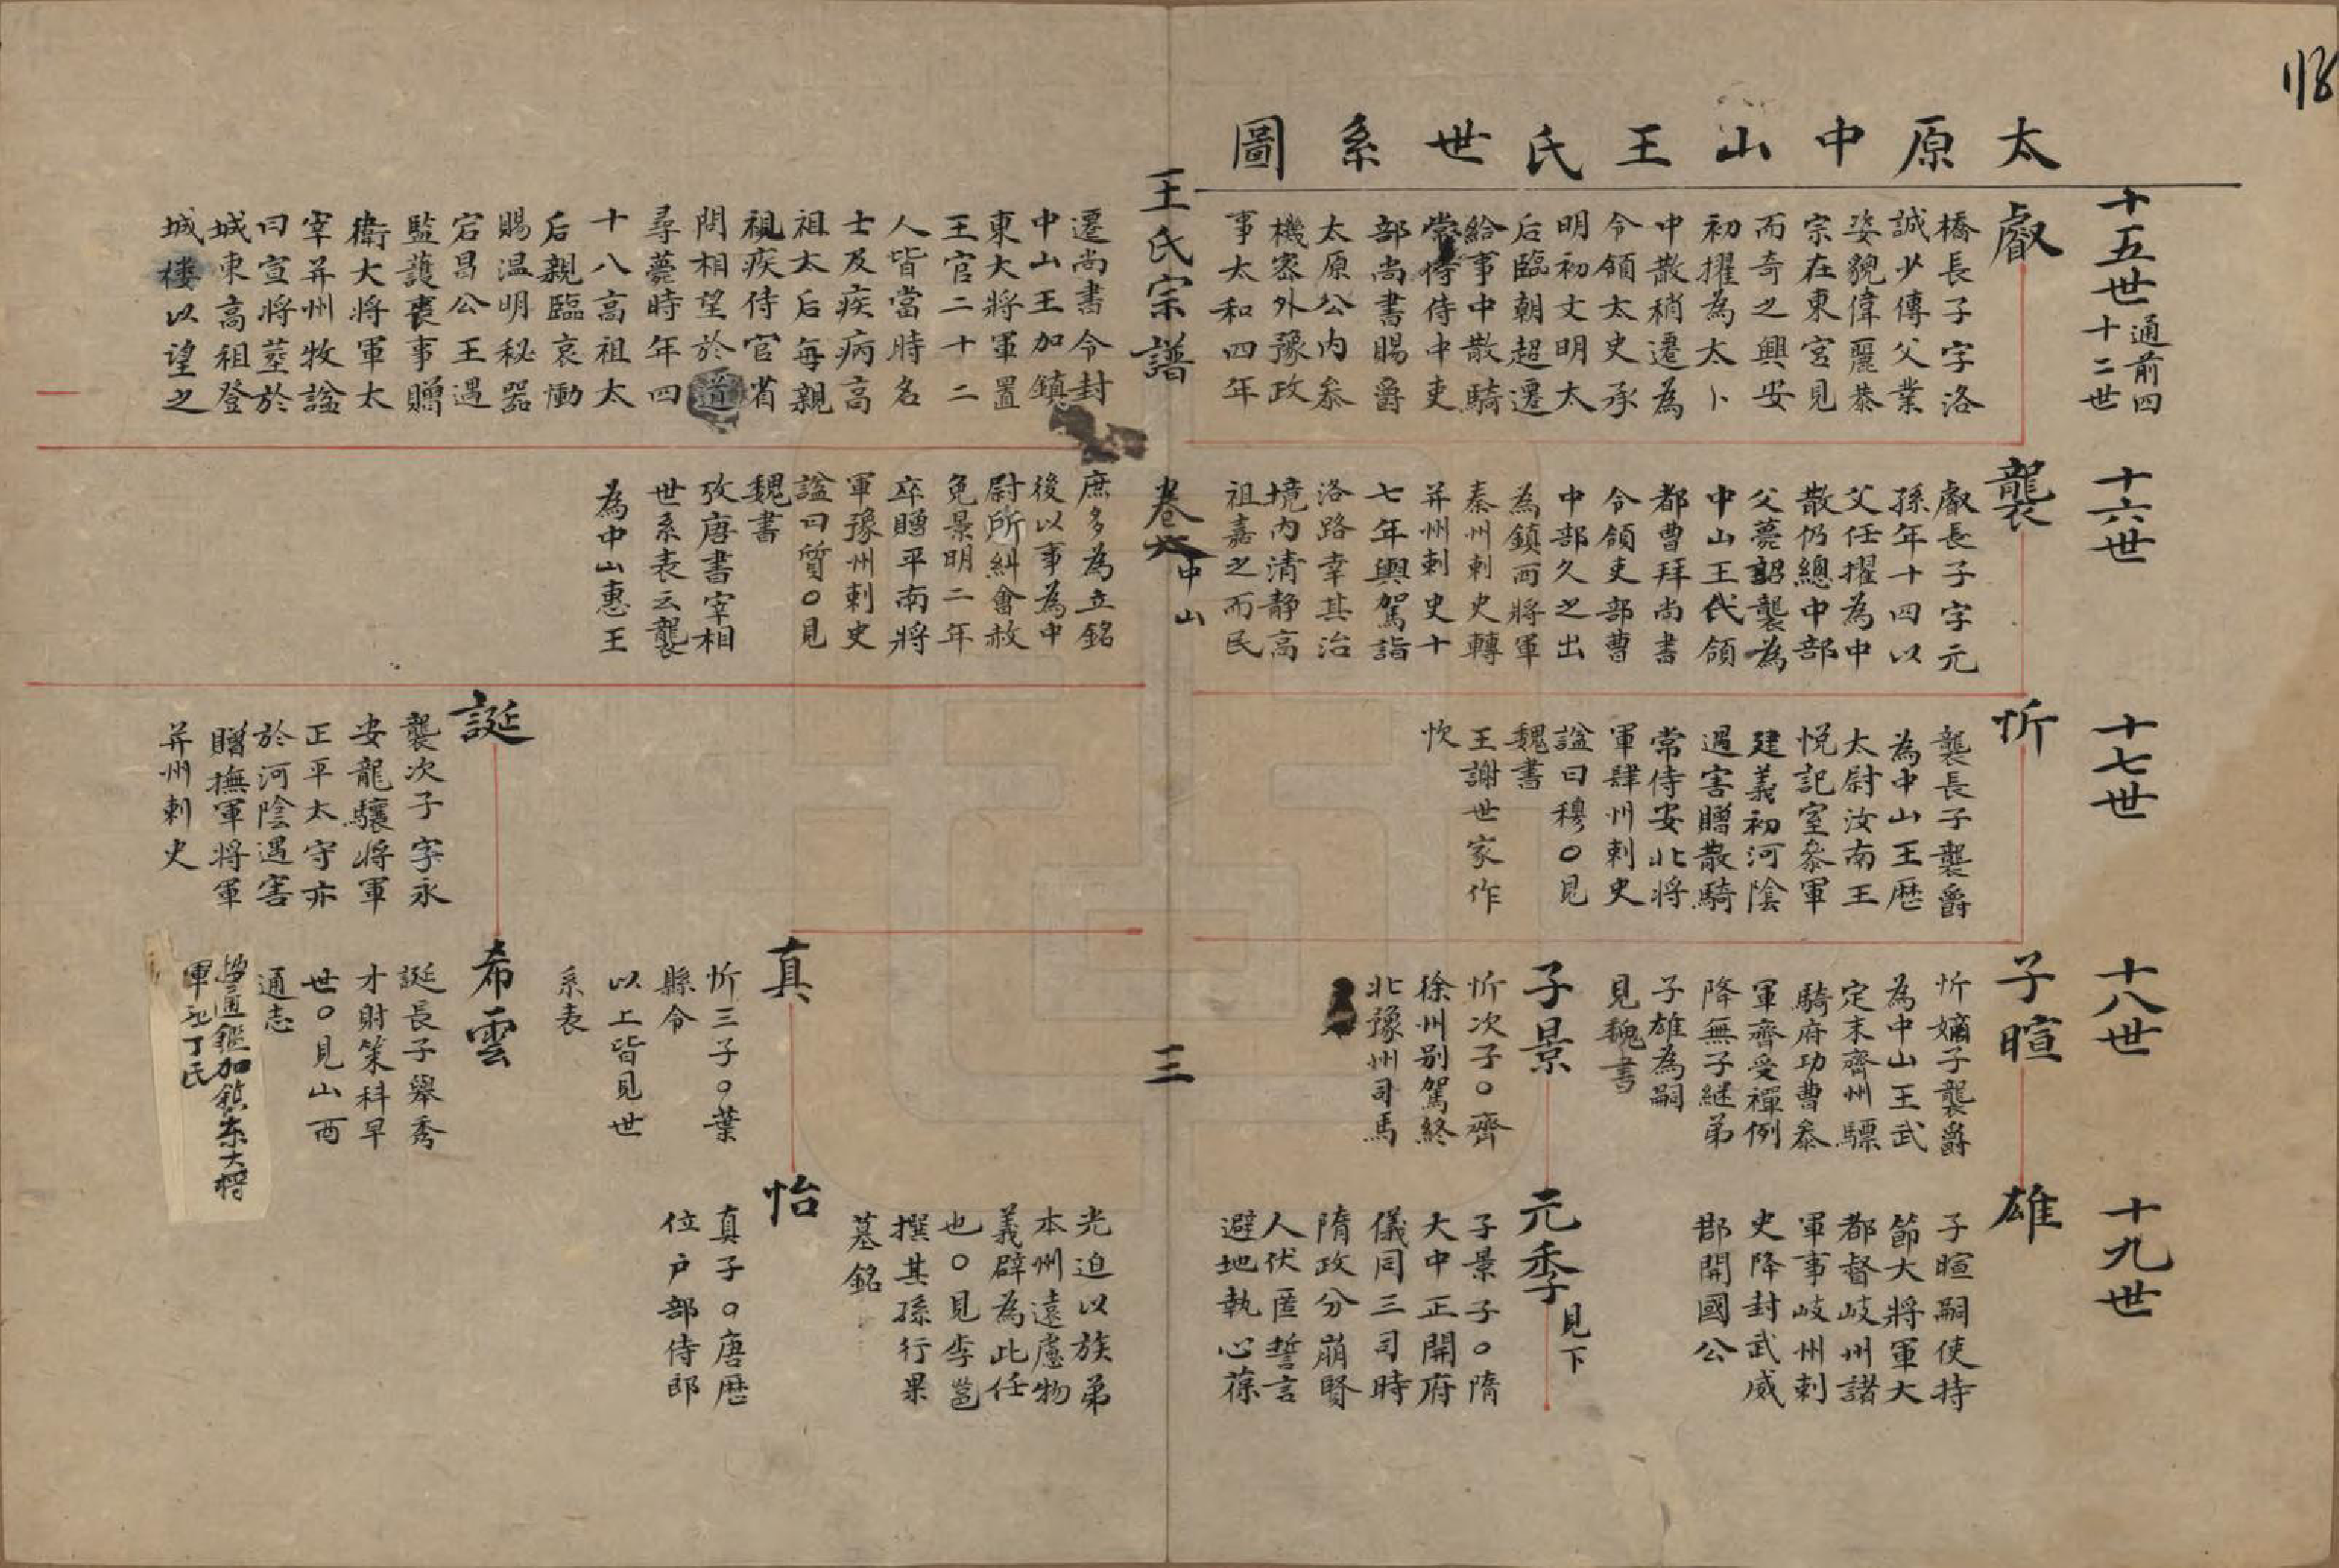 118
太原中山王氏世系圖
十五世
通前四
十二世
叡
橋長子字洛
誠少傳父業
姿貌偉麗恭
宗在東宮見
而奇之興安
初擢為太卜
中散稍遷為
令領太史承
明初文明太
后臨朝超遷
給事中散騎
常侍侍中吏
部尚書賜爵
太原公內參
機密外豫政
事太和四年
遷尚書令封
中山王加鎮
東大將軍置
王官二十二
人皆當時名
士及疾病高
祖太后每親
視疾侍官省
問相望於道
尋薨時年四
十八高祖太
后親臨哀慟
賜溫明秘器
宕昌公王遇
監護喪事贈
衛大將軍太
宰并州牧諡
曰宣將塟於
城東高祖登
城樓以望之
十六世
襲
叡長子字元
孫年十四以
父任擢為中
散仍總中部
父薨詔襲為
中山王代領
都曹拜尚書
令領吏部曹
中部久之出
為鎮西將軍
秦州刺史轉
并州刺史十
七年輿駕詣
洛路幸其治
境內清靜高
祖嘉之而民
庶多為立銘
後以事為中
尉所糾會赦
免景明二年
卒贈平南將
軍豫州刺史
諡曰質○見
魏書
攷唐書宰相
世系表云襲
為中山惠王
十七世
忻
襲長子襲爵
為中山王歷
太尉汝南王
悅記室參軍
建義初河陰
遇害贈散騎
常侍安北將
軍肆州刺史
諡曰穆○見
魏書
王謝世家作
忺
誕
襲次子字永
安龍驤將軍
正平太守亦
於河陰遇害
贈撫軍將軍
并州刺史
十八世
子暄
忻嫡子襲爵
為中山王武
定末齊州驃
騎府功曹參
軍齊受禪例
降無子継弟
子雄為嗣
見魏書
子景
忻次子○齊
徐州別駕終
北豫州司馬
真
忻三子○葉
縣令
以上皆見世
系表
希雲
誕長子舉秀
才射策科早
世○見山西
通志
十九世
雄
子暄嗣使持
節大將軍大
都督岐州諸
軍事岐州刺
史降封武威
郡開國公
元季
見下
子景子○隋
大中正開府
儀同三司時
隋政分崩賢
人伏匿誓言
避地執心葆
光迫以族弟
本州遠慮物
義辟為此任
也○見李邕
撰其孫行果
墓銘
怡
真子○唐歷
位户部侍郎
王氏宗譜
卷
中山
三